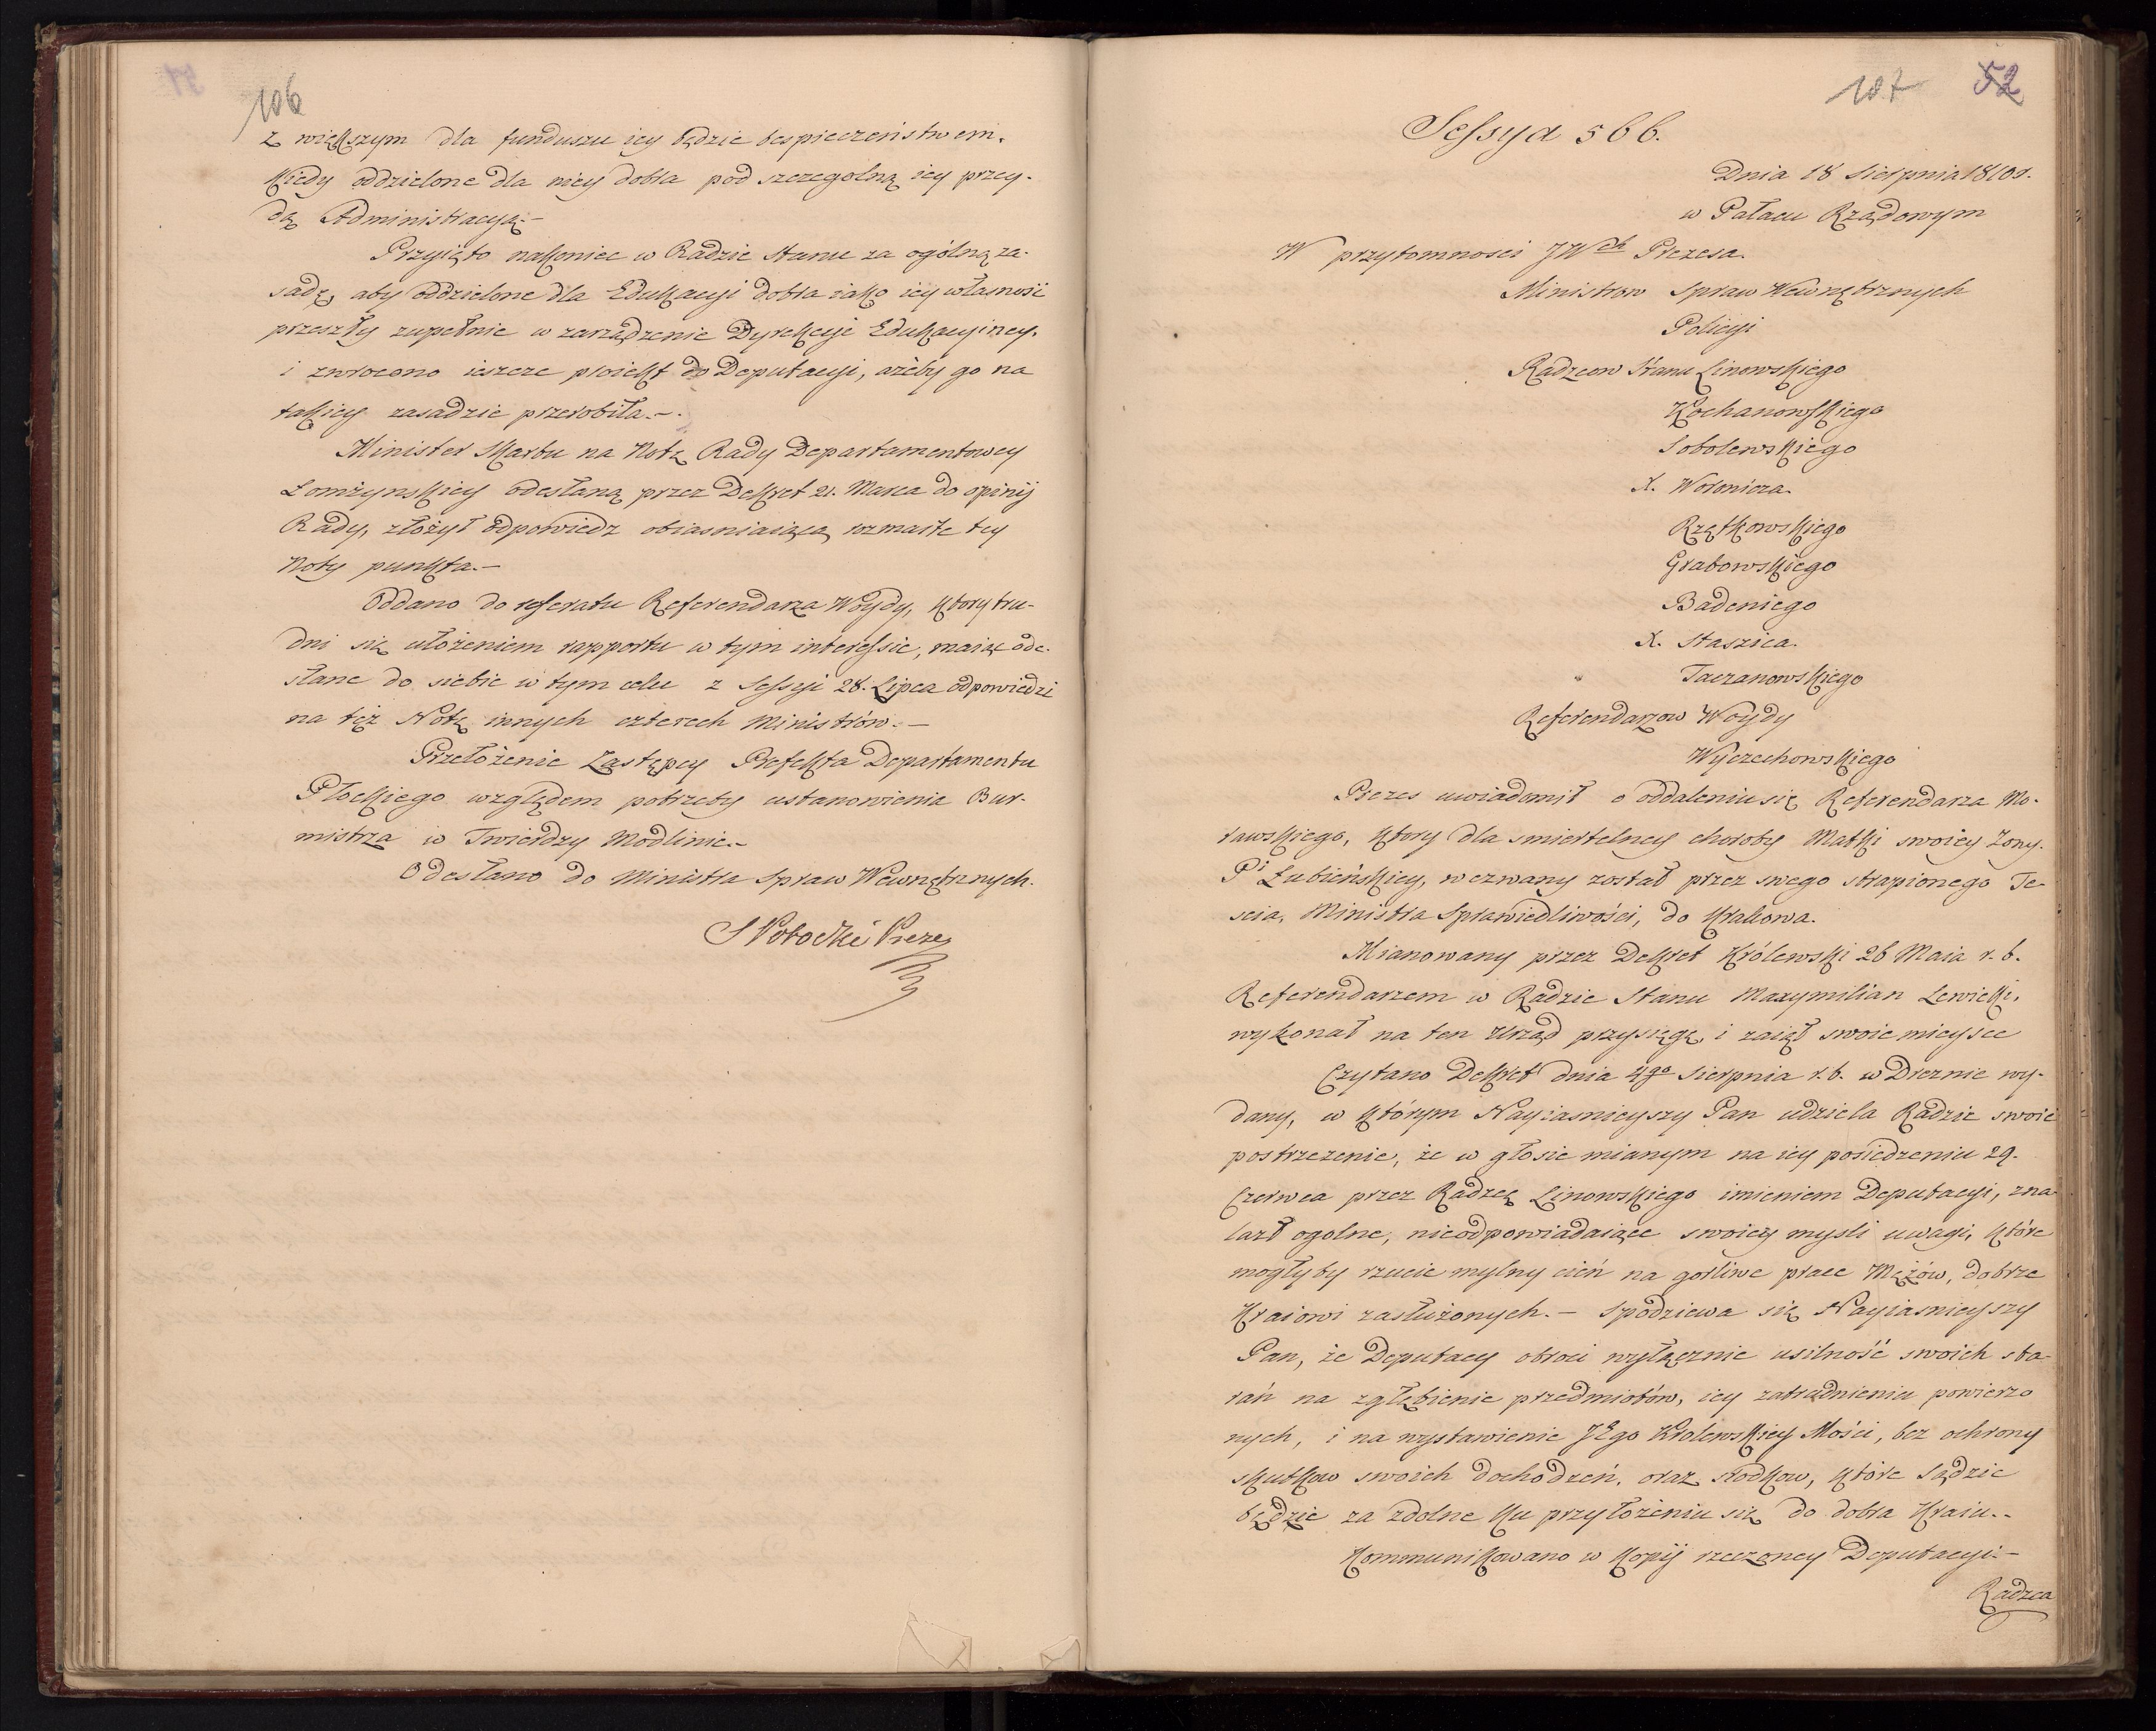 106
z większym dla funduszu iey będzie bespieczeństwem.
Kiedy oddzielone dla niey dobra pod szczegolną iey przey-
dą Administracyą.-
Przyięto nakoniec w Radzie Stanu za ogólną za-
sadę, aby oddzielone dla Edukacyi dobra iako iey własność
przeszły zupełnie w zarządzenie Dyrekcyi Edukacyiney.
i zwrocono ieszcze proiekt do Deputacyi, ażeby go na
takiey zasadzie przerobiła.-.
Minister Skarbu na Notę Rady Departamentowey
Łomżynskiey odesłaną przez Dekret 21. Marca do opinij
Rady, złożył odpowiedz obiasniaiącą rozmaite tey
Noty punkta.-
Oddano do referatu Referendarza Woydy, ktory tru-
dni się ułożeniem rapportu w tym interessie, maiąc ode-
słane do siebie w tym celu z Sessyi 28. Lipca odpowiedzi
na tęż Notę innych czterech Ministrów.-
Przełożenie Zastępcy Prefekta Departamentu
Płockiego względem potrzeby ustanowienia Bur-
mistrza w Twierdzy Modlinie.-
Odesłano do Ministra Spraw Wewnętrznych.
S Potocki Prezes
107 52
Sessya 566.
Dnia 18 Sierpnia 1810 r.
w Pałacu Rządowym
W przytomnosci JWch Prezesa.
Ministrow Spraw Wewnętrznych
Policyi
Radzcow Stanu Linowskiego
Kochanowskiego
Sobolewskiego
X. Woronicza.
Rzętkowskiego
Grabowskiego
Badeniego
X. Staszica.
Taczanowskiego
Referendarzow Woydy
Wyczechowskiego
Prezes uwiadomił o oddaleniu się Referendarza Mo-
rawskiego, ktory dla smiertelney choroby Matki swoiey Zony.
Pi Łubieńskiey, wezwany został przez swego strapionego Te-
scia, Ministra Sprawiedliwości, do Krakowa.
Mianowany przez Dekret Królewski 26 Maia r. b.
Referendarzem w Radzie Stanu Maxymilian Lewicki,
wykonał na ten Urząd przysięgę, i zaiął swoie mieysce
Czytano Dekret dnia 4go Sierpnia r. b. w Dreznie wy-
dany, w którym Nayiasnieyszy Pan udziela Radzie swoie
postrzezenie, że w głosie mianym na iey posiedzeniu 29.
Czerwca przez Radzcę Linowskiego imieniem Deputacyi, zna
lazł ogolne, nieodpowiadaiące swoiey mysli uwagi, które
mogłyby rzucic mylny cień na gorliwe prace Mężów, dobrze
Kraiowi zasłużonych.- Spodziewa się Nayiasnieyszy
Pan, że Deputacy obroci wyłącznie usilność swoich sta-
rań na zgłębienie przedmiotów, iey zatrudnieniu powierzo
nych, i na wystawienie JEgo Krolewskiey Mości, bez ochrony
skutkow swoich dochodzeń, oraz srodkow, które sądzic
będzie za zdolne ku przyłożeniu się do dobra Kraiu.-
Kommunikowano w kopij rzeczoney Deputacyi.-
Radzca